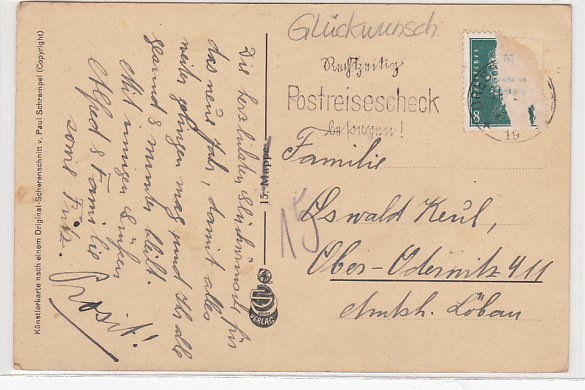 Künstlerkarte nach einem Original-Scherenschnitt v. Paul Schrempel (Copyright)
Die herzlichsten Glückwünsche für
das neue Jahr, damit alles
weiter gelingen mag und Ihr alle
gesund & munter bleibt.
Mit innigen Grüßen
Alfred & Familie
sowie Fritz.
Prosit!
15. Mappe
15
VERLAG
Glückwunsch
Rechtzeitig
Postreisescheck
besorgen!
8
19
Familie
Oswald Keül,
Ober-Oderwitz 411
Amtsh. Löbau